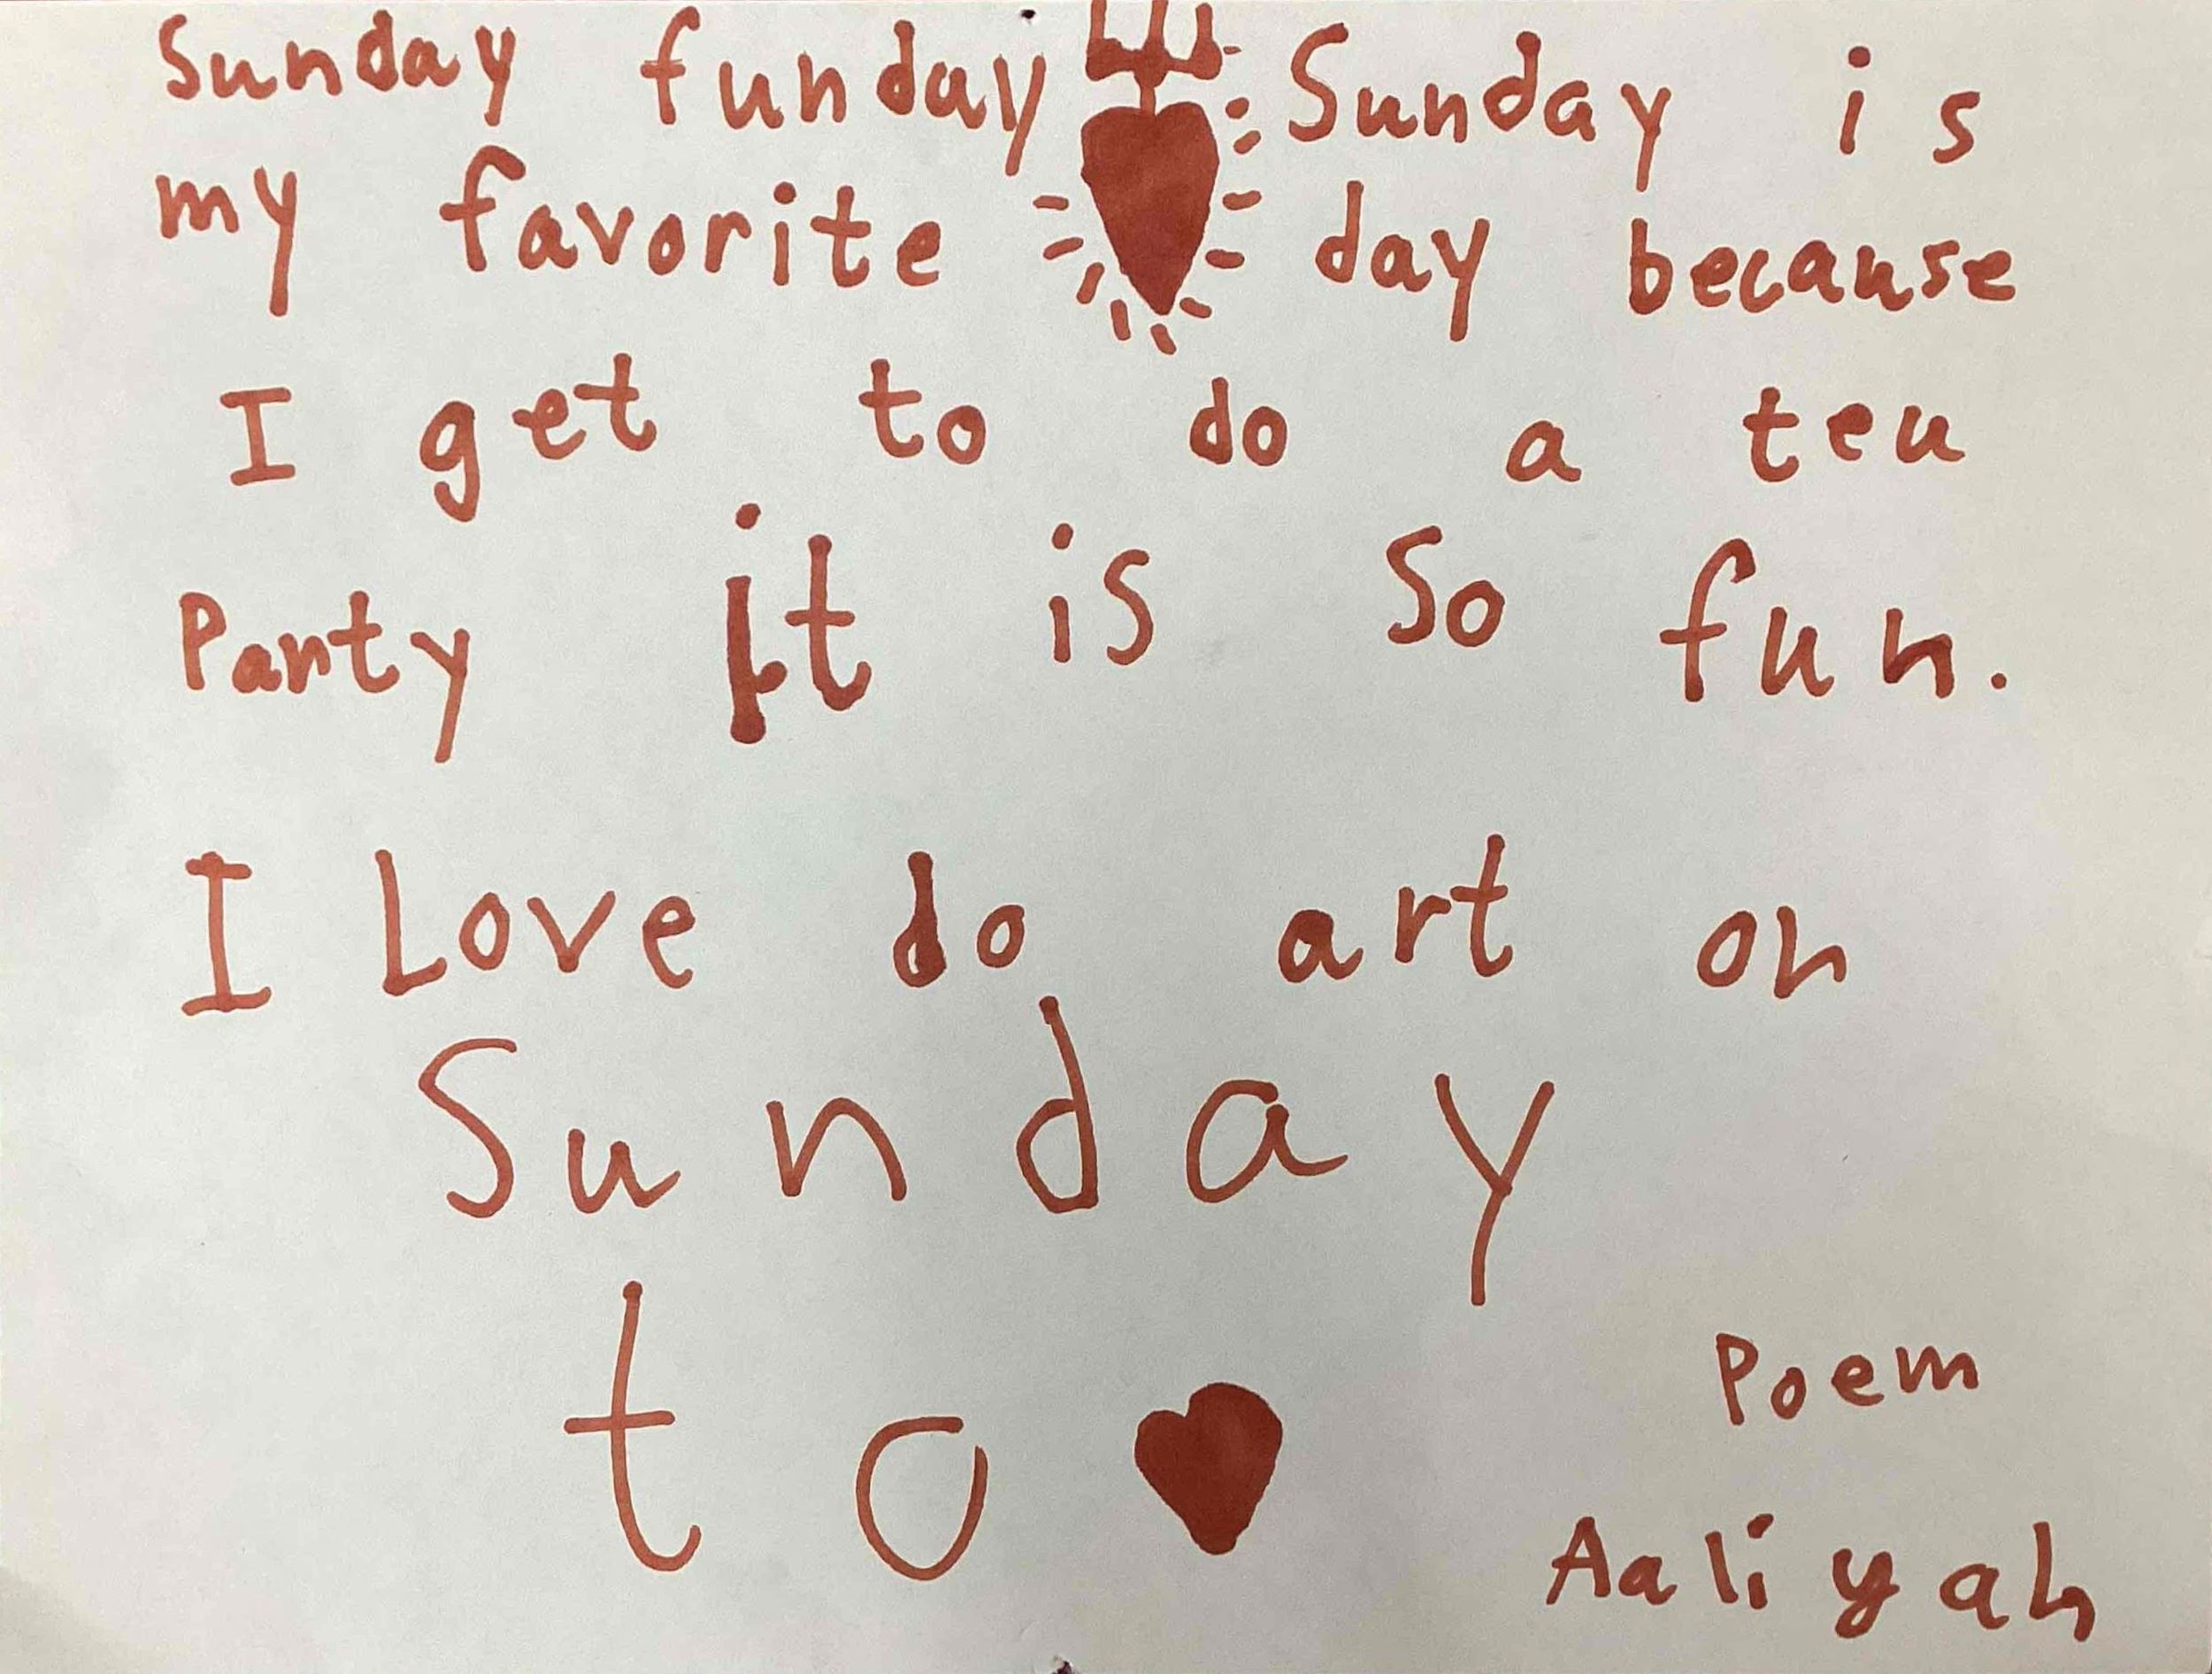 Sunday funday Sunday is
my favorite day because
I get to do a tea
Party it is So fun.
I Love do art on
Sunday
to
Poem
Aaliyah